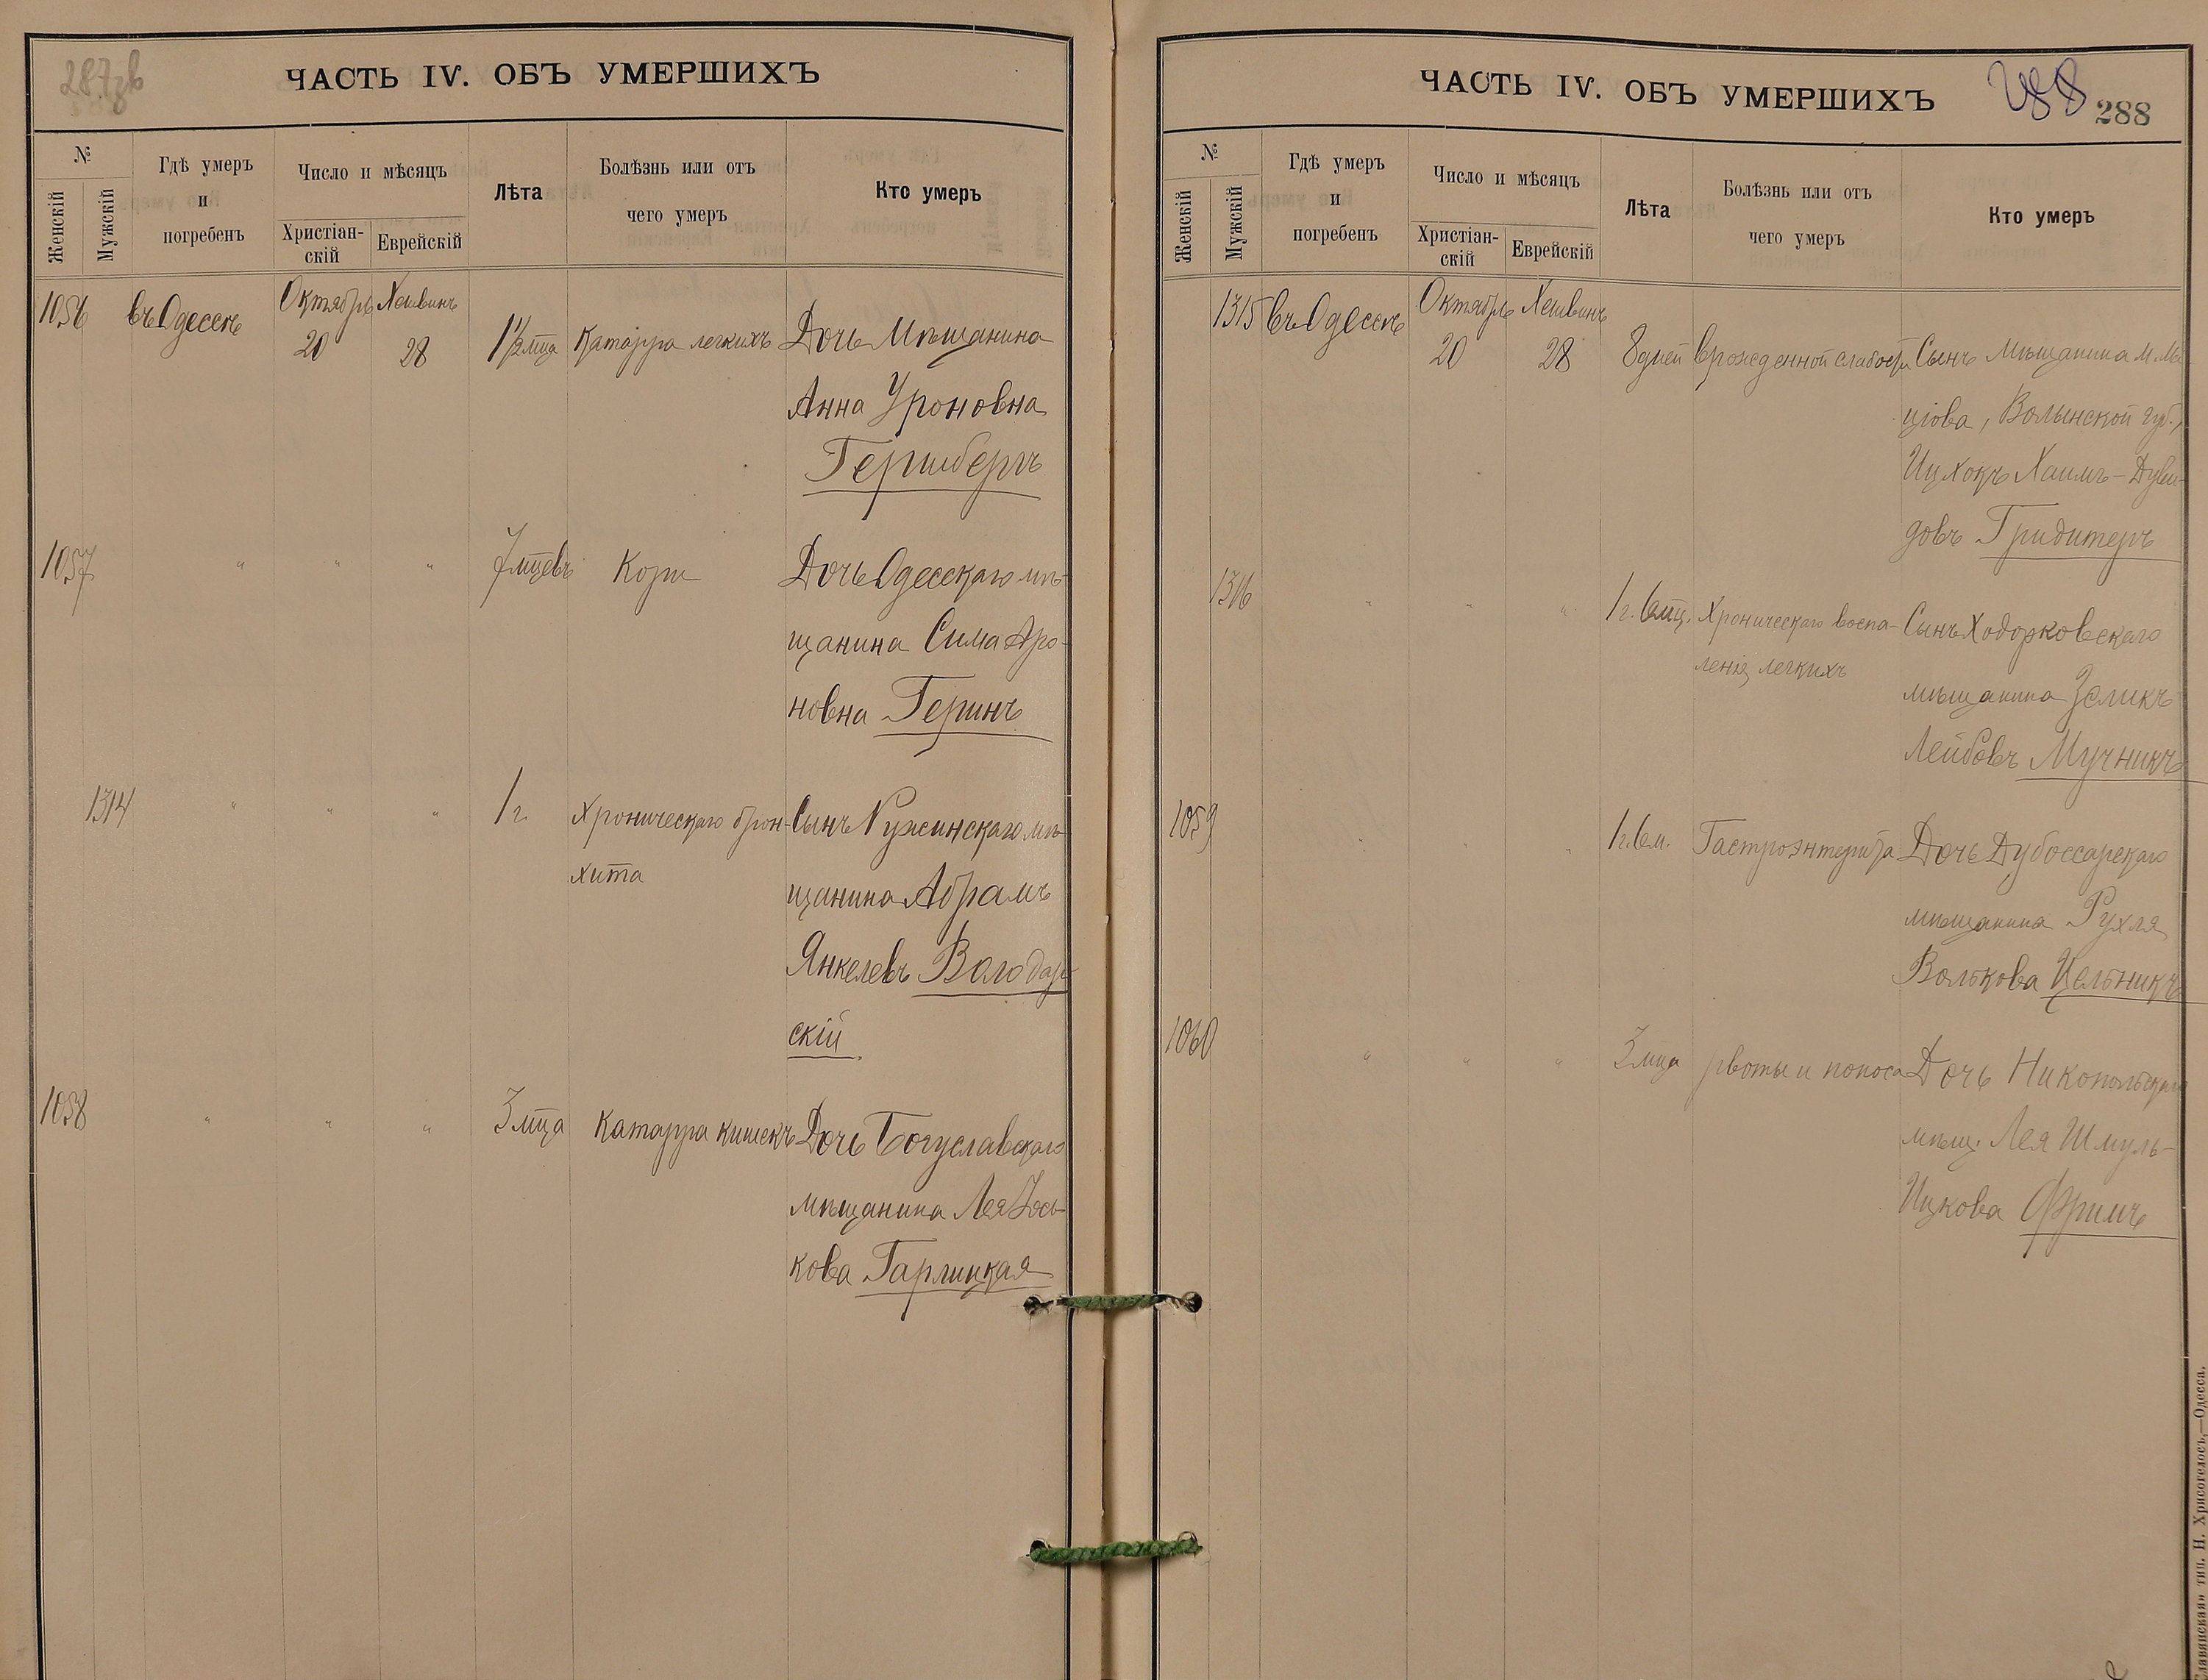 287зв
ЧАСТЬ IV. ОБЪ УМЕРШИХЪ
№
Женскій
Мужскій
Гдѣ умеръ
и
погребенъ
Число и мѣсяцъ
Христіан-
скій
Еврейскій
Лѣта
Болѣзнь или отъ
чего умеръ
Кто умеръ
1056 въ Одессѣ Октябрь Хешвинъ
20 28 1 1/2 мѣца Катарра легкихъ Дочь Мѣщанина
Анна Уроновна
Гершбергъ
1057 " " " 7 мцевъ Кори Дочь Одесскаго мѣ-
щанина Сима Аро-
новна Геринъ
1314 " " " 1 г. Хроническаго брон- Сынъ Ружинскаго мѣ-
хита щанина Абрамъ
Янкелевъ Володар-
скій
1058 " " " 3 мца Катарра кишекъ Дочь Богуславскаго
мѣщанина Лея Іось-
кова Гарлицкая
ЧАСТЬ IV. ОБЪ УМЕРШИХЪ
288
288
№
Женскій
Мужскій
Гдѣ умеръ
и
погребенъ
Число и мѣсяцъ
Христіан-
скій
Еврейскій
Лѣта
Болѣзнь или отъ
чего умеръ
Кто умеръ
1315 въ Одессѣ Октябрь Хешвинъ
20 28 8 дней врожденной слабости Сынъ мѣщанина м.
Волынской губ.,
Ицхокъ Хаимъ-Дуви-
довъ Гридитеръ
1316 " " " 1 г. 6 мц. Хроническаго воспа- Сынъ Ходорковскаго
ленія легкихъ мѣщанина Зеликъ
Лейбовъ Мучникъ
1059 " " " 1 г. 6 м. Гастроэнтерита Дочь Дубоссарскаго
мѣщанина Рухля
Волькова Цельникъ
1060 " " " 3 мца рвоты и поноса Дочь Никопольскаго
мѣщ. Лея Шмуль-
Ицкова Фримъ
тип. Н. Хрисогелосъ,—Одесса.